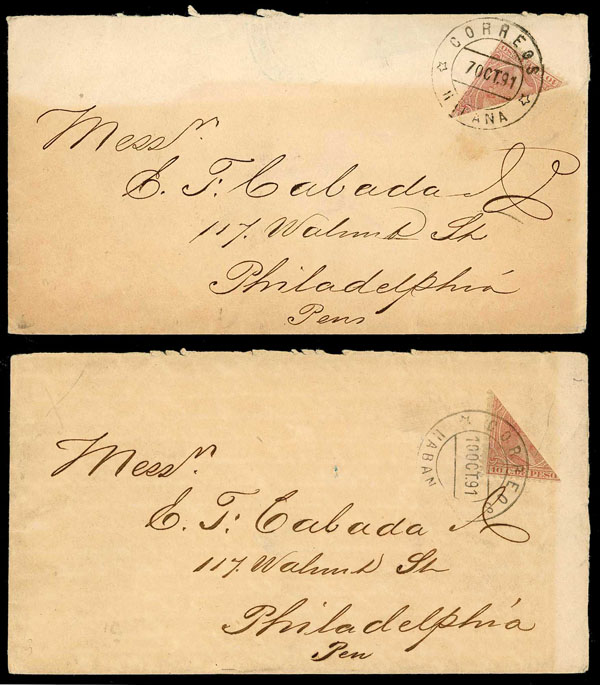 CORREOS
7 OCT. 91
HABANA
Mess rs
E. T. Cabada
117. Walnut St
Philadelphia
Pens
CORREO
10 OCT. 91
HABAN
10 C. PESO
Mess rs
E. T. Cabada
117. Walnut St
Philadelphia
Pen